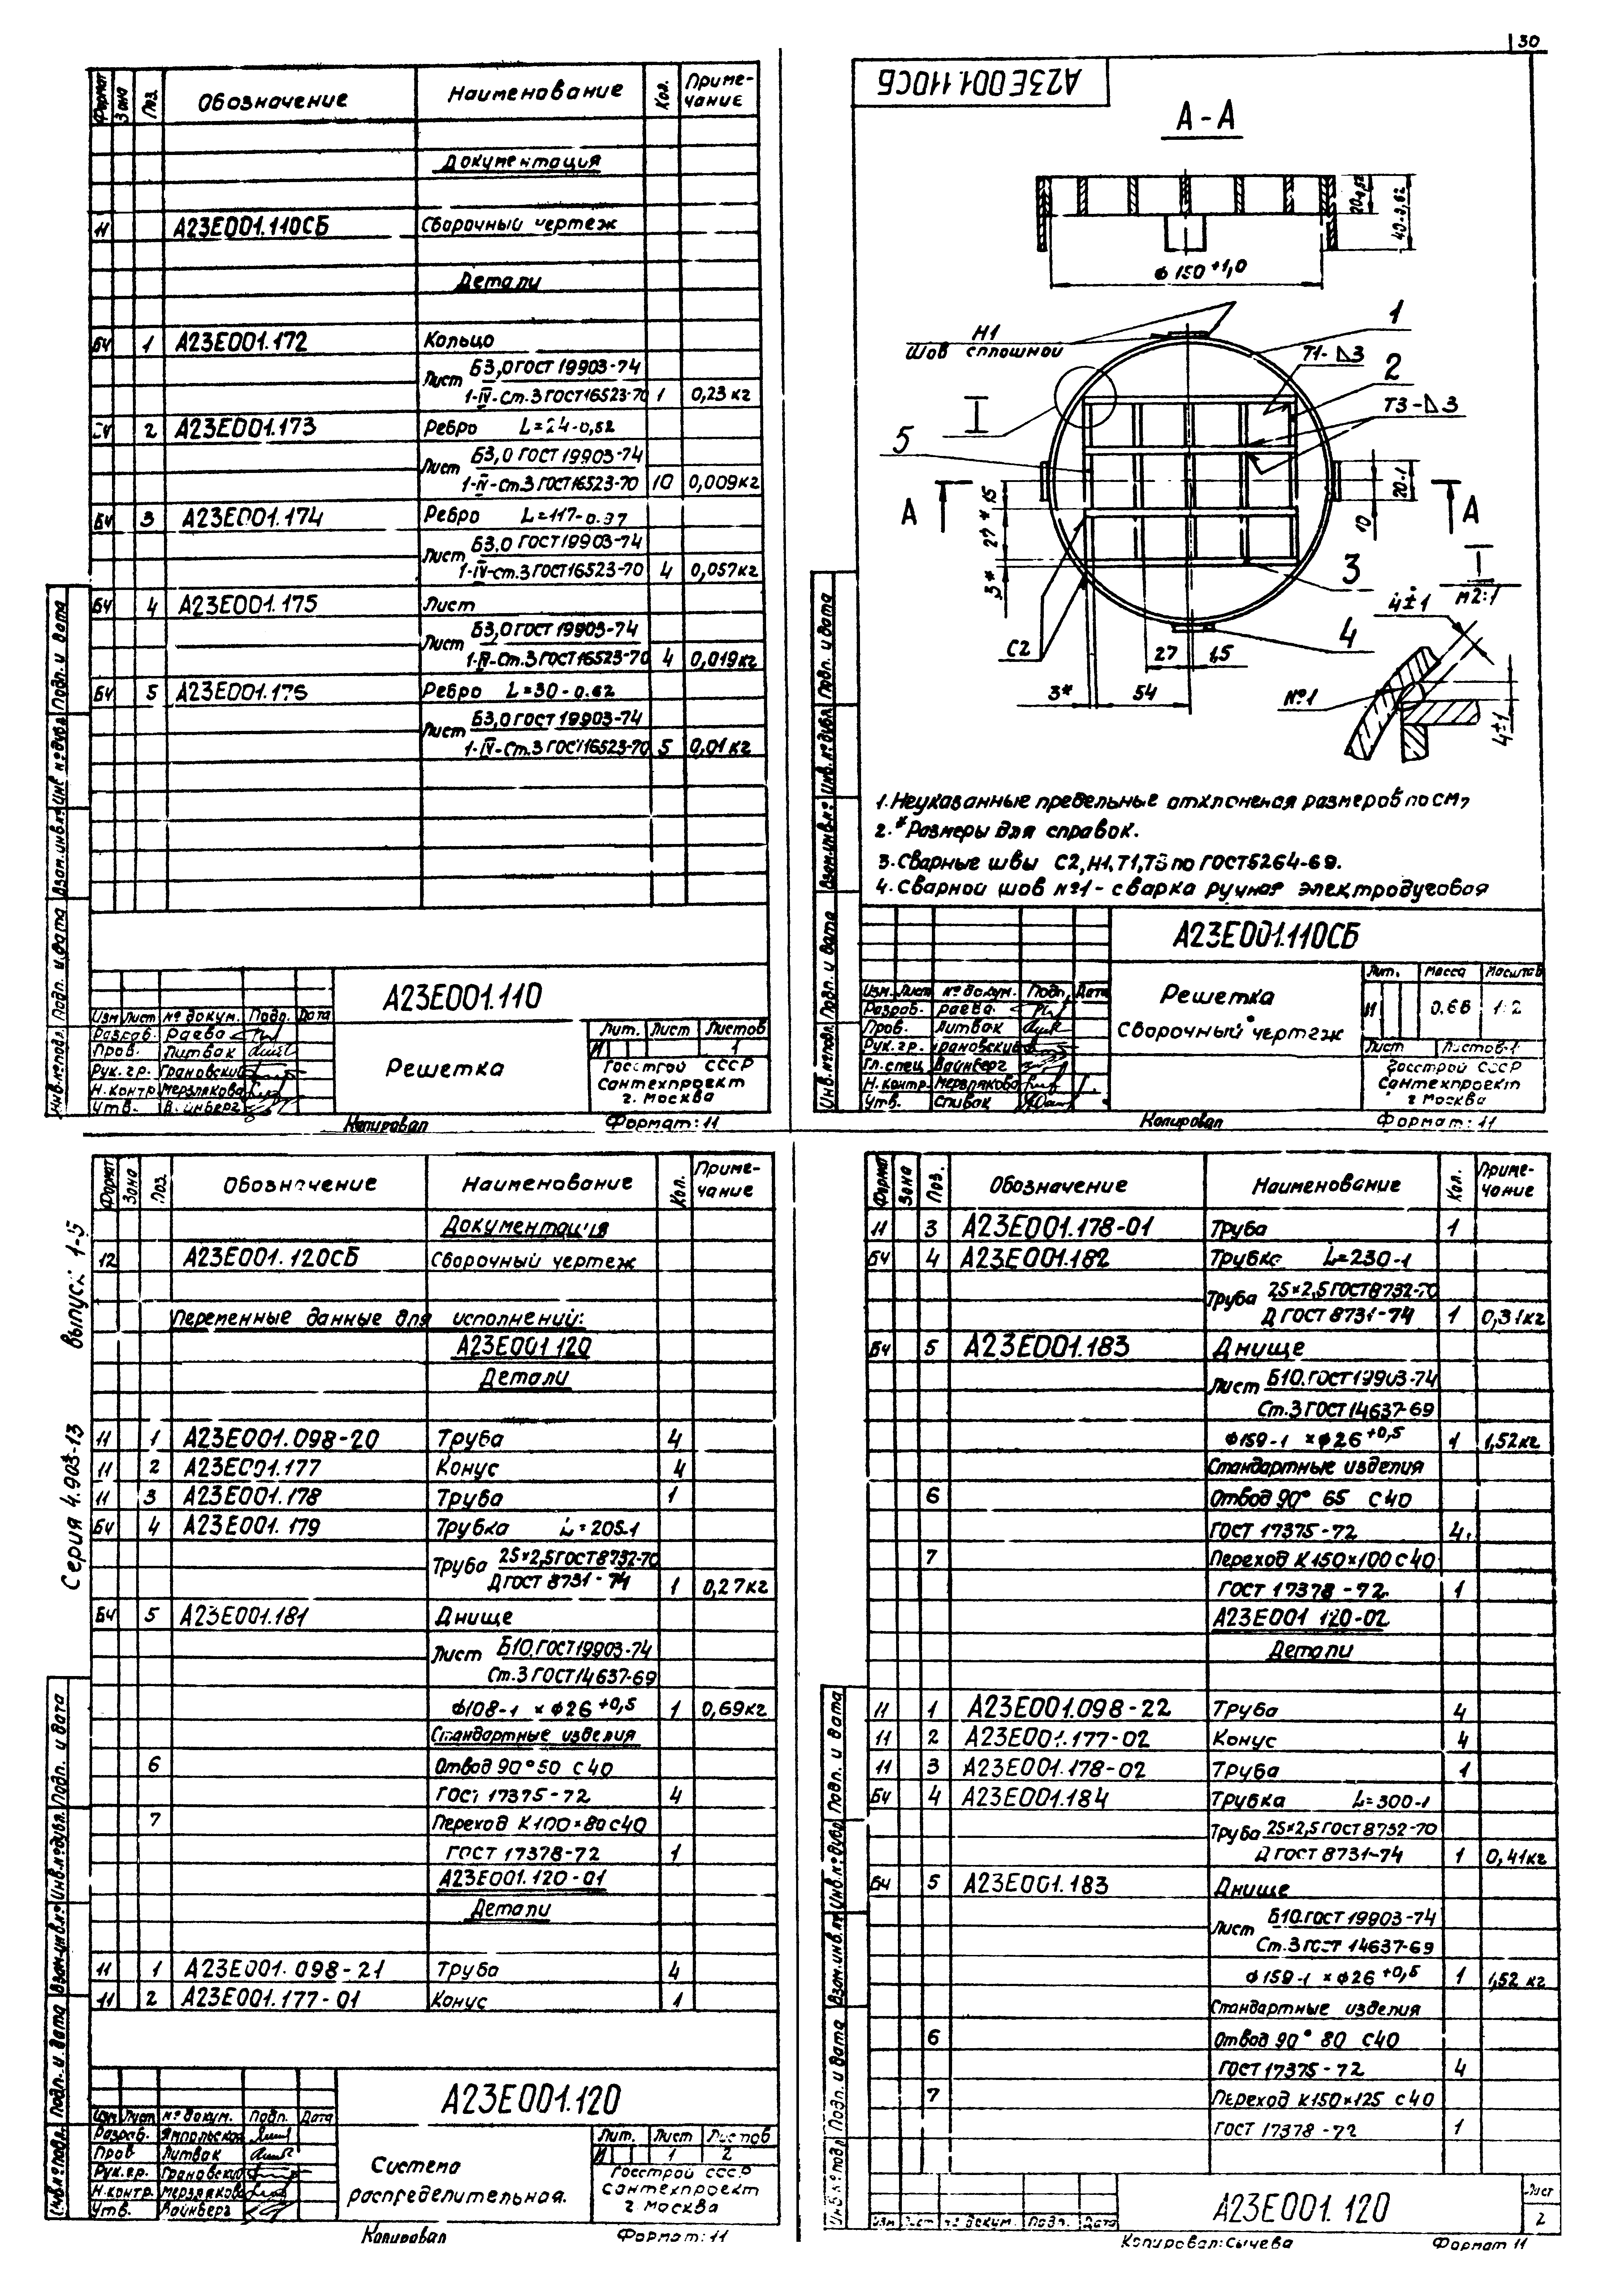 30
Формат Зона Поз. Обозначение Наименование Кол. Приме-
чание
Документация
11 А23Е001.110СБ Сборочный чертеж
Детали
БЧ 1 А23Е001.172 Кольцо
Лист Б3,0 ГОСТ 19903-74
1-IV-Ст.3 ГОСТ16523-70 1 0,23 кг
2 А23Е001.173 Ребро L=24-0,52
Лист Б3,0 ГОСТ 19903-74
1-IV-Ст.3 ГОСТ16523-70 10 0,009кг
БЧ 3 А23Е001.174 Ребро L=117-0.87
Лист Б3.0 ГОСТ 19903-74
1-IV-Ст.3 ГОСТ16523-70 4 0,057кг
БЧ 4 А23Е001.175 Лист
Лист Б3,0 ГОСТ 19903-74
1-IV-Ст.3 ГОСТ16523-70 4 0,019кг
БЧ 5 А23Е001.176 Ребро L=30-0.62
Лист Б3,0 ГОСТ 19903-74
1-IV-Ст.3 ГОСТ16523-70 5 0,01 кг
Инв.№подл. Подп. и дата Взам.инв.№ Инв.№дубл. Подп. и дата
А23Е001.110
Изм Лист № докум. Подп. Дата
Разраб. Раева
Пров. Литвак
Рук. гр. Грановский
Н.контр. Мерзлякова
Утв. Вайнберг
Решетка
Лит. Лист Листов
И 1
Госстрой СССР
Сантехпроект
г. Москва
Копировал Формат: 11
А23Е001.110СБ
А-А
20-0,52
40-0,62
ф 150 +1,0
Н1
Шов сплошной
1
Т1-⊿3
2
Т3-⊿3
I
5
А А
15
27*
3*
20-1
10
3
I
М2:1
4±1
С2
4
27 1,5
3* 54
№1
4±1
1. Неуказанные предельные отклонения размеров по СМ7
2.* Размеры для справок.
3. Сварные швы С2, Н1, Т1, Т3 по ГОСТ5264-69.
4. Сварной шов №1 - сварка ручная электродуговая
Инв.№подл. Подп. и дата Взам.инв.№ Инв.№дубл. Подп. и дата
А23Е001.110СБ
Изм. Лист № докум. Подп. Дата
Разраб. Раева
Пров. Литвак
Рук. гр. Грановский
Гл. спец. Вайнберг
Н. контр. Мерзлякова
Утв. Спивак
Решетка
Сборочный чертеж
Лит. Масса Масштаб
И 0.66 1:2
Лист Листов 1
Госстрой СССР
Сантехпроект
г Москва
Копировал Формат: 11
Серия 4.903-13 выпуск 1-5
Формат Зона Поз. Обозначение Наименование Кол. Приме-
чание
Документация
12 А23Е001.120СБ Сборочный чертеж
Переменные данные для исполнений:
А23Е001 120
Детали
11 1 А23Е001.098-20 Труба 4
11 2 А23Е001.177 Конус 4
11 3 А23Е001.178 Труба 1
БЧ 4 А23Е001.179 Трубка L=205-1
Труба 25×2,5 ГОСТ8732-70
Д ГОСТ 8731-74 1 0,27кг
БЧ 5 А23Е001.181 Днище
Лист Б10. ГОСТ19903-74
Ст.3 ГОСТ14637-69
ф108-1 × ф26 +0,5 1 0,69кг
Стандартные изделия
6 Отвод 90° 50 С40
ГОСТ 17375-72 4
7 Переход К100×80 С40
ГОСТ 17378-72 1
А23Е001.120-01
Детали
11 1 А23Е001.098-21 Труба 4
11 2 А23Е001.177-01 Конус 1
Инв.№подл. Подп. и дата Взам.инв.№ Инв.№дубл. Подп. и дата
А23Е001.120
Изм Лист № докум. Подп. Дата
Разраб. Ямпольская
Пров Литвак
Рук.гр. Грановский
Н.контр. Мерзлякова
Утв. Вайнберг
Система
распределительная.
Лит. Лист Листов
И 1 2
Госстрой СССР
Сантехпроект
г. Москва
Копировал Формат: 11
Формат Зона Поз. Обозначение Наименование Кол. Приме-
чание
11 3 А23Е001.178-01 Труба 1
БЧ 4 А23Е001.182 Трубка L=230-1
Труба 25×2,5 ГОСТ8732-70
Д ГОСТ 8731-74 1 0,31кг
БЧ 5 А23Е001.183 Днище
Лист Б10. ГОСТ19903-74
Ст.3 ГОСТ14637-69
ф159-1 × ф26 +0,5 1 1,52кг
Стандартные изделия
6 Отвод 90° 65 С40
ГОСТ 17375-72 4
7 Переход К150×100 С40
ГОСТ 17378-72 1
А23Е001 120-02
Детали
11 1 А23Е001.098-22 Труба 4
11 2 А23Е001.177-02 Конус 4
11 3 А23Е001.178-02 Труба 1
БЧ 4 А23Е001.184 Трубка L=300-1
Труба 25×2,5 ГОСТ 8732-70
Д ГОСТ 8731-74 1 0,41кг
БЧ 5 А23Е001.183 Днище
Лист Б10. ГОСТ 19903-74
Ст.3 ГОСТ 14637-69
ф159-1 × ф26 +0,5 1 1,52 кг
Стандартные изделия
6 Отвод 90° 80 С40
ГОСТ 17375-72 4
7 Переход К150×125 С40
ГОСТ 17378-72 1
Инв.№ подл Подп. и дата Взам.инв.№ Инв.№ дубл Подп. и дата
Изм Лист № докум. Подп. Дата
А23Е001.120
Лист
2
Копировал: Сычева Формат 11